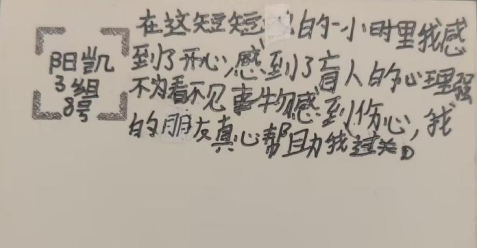 阳凯
3组
8号
在这短短的一小时里我感
到了开心,感到了盲人的心理强
不为看不见事物感到伤心,我
的朋友真心帮助我过关。